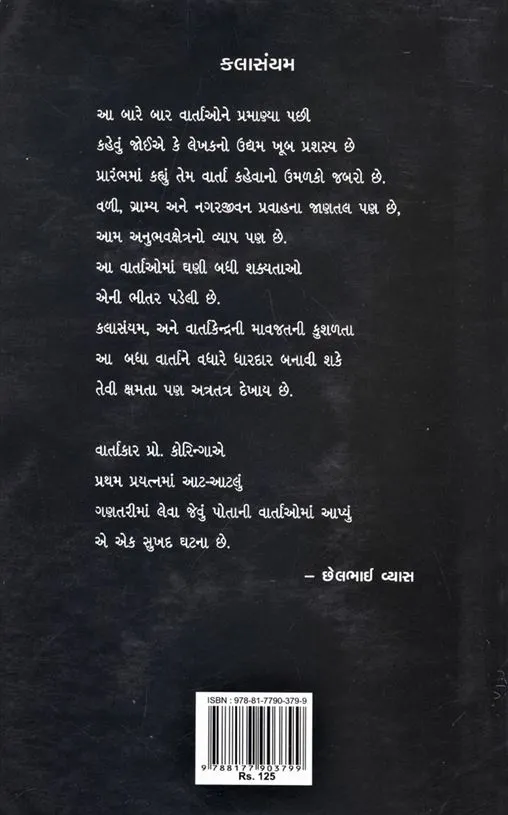 કલાસંયમ
આ બારે બાર વાર્તાઓને પ્રમાણ્યા પછી
કહેવું જોઈએ કે લેખકનો ઉદ્યમ ખૂબ પ્રશસ્ય છે
પ્રારંભમાં કહ્યું તેમ વાર્તા કહેવાનો ઉમળકો જબરો છે.
વળી, ગ્રામ્ય અને નગરજીવન પ્રવાહના જાણતલ પણ છે,
આમ અનુભવક્ષેત્રનો વ્યાપ પણ છે.
આ વાર્તાઓમાં ઘણી બધી શક્યતાઓ
એની ભીતર પડેલી છે.
કલાસંયમ, અને વાર્તાકેન્દ્રની માવજતની કુશળતા
આ બધા વાર્તાને વધારે ધારદાર બનાવી શકે
તેવી ક્ષમતા પણ અત્રતત્ર દેખાય છે.
વાર્તાકાર પ્રો. કોરિંગાએ
પ્રથમ પ્રયત્નમાં આટ-આટલું
ગણતરીમાં લેવા જેવું પોતાની વાર્તાઓમાં આપ્યું
એ એક સુખદ ઘટના છે.
– છેલભાઈ વ્યાસ
ISBN : 978-81-7790-379-9
9 788177 903799
Rs. 125